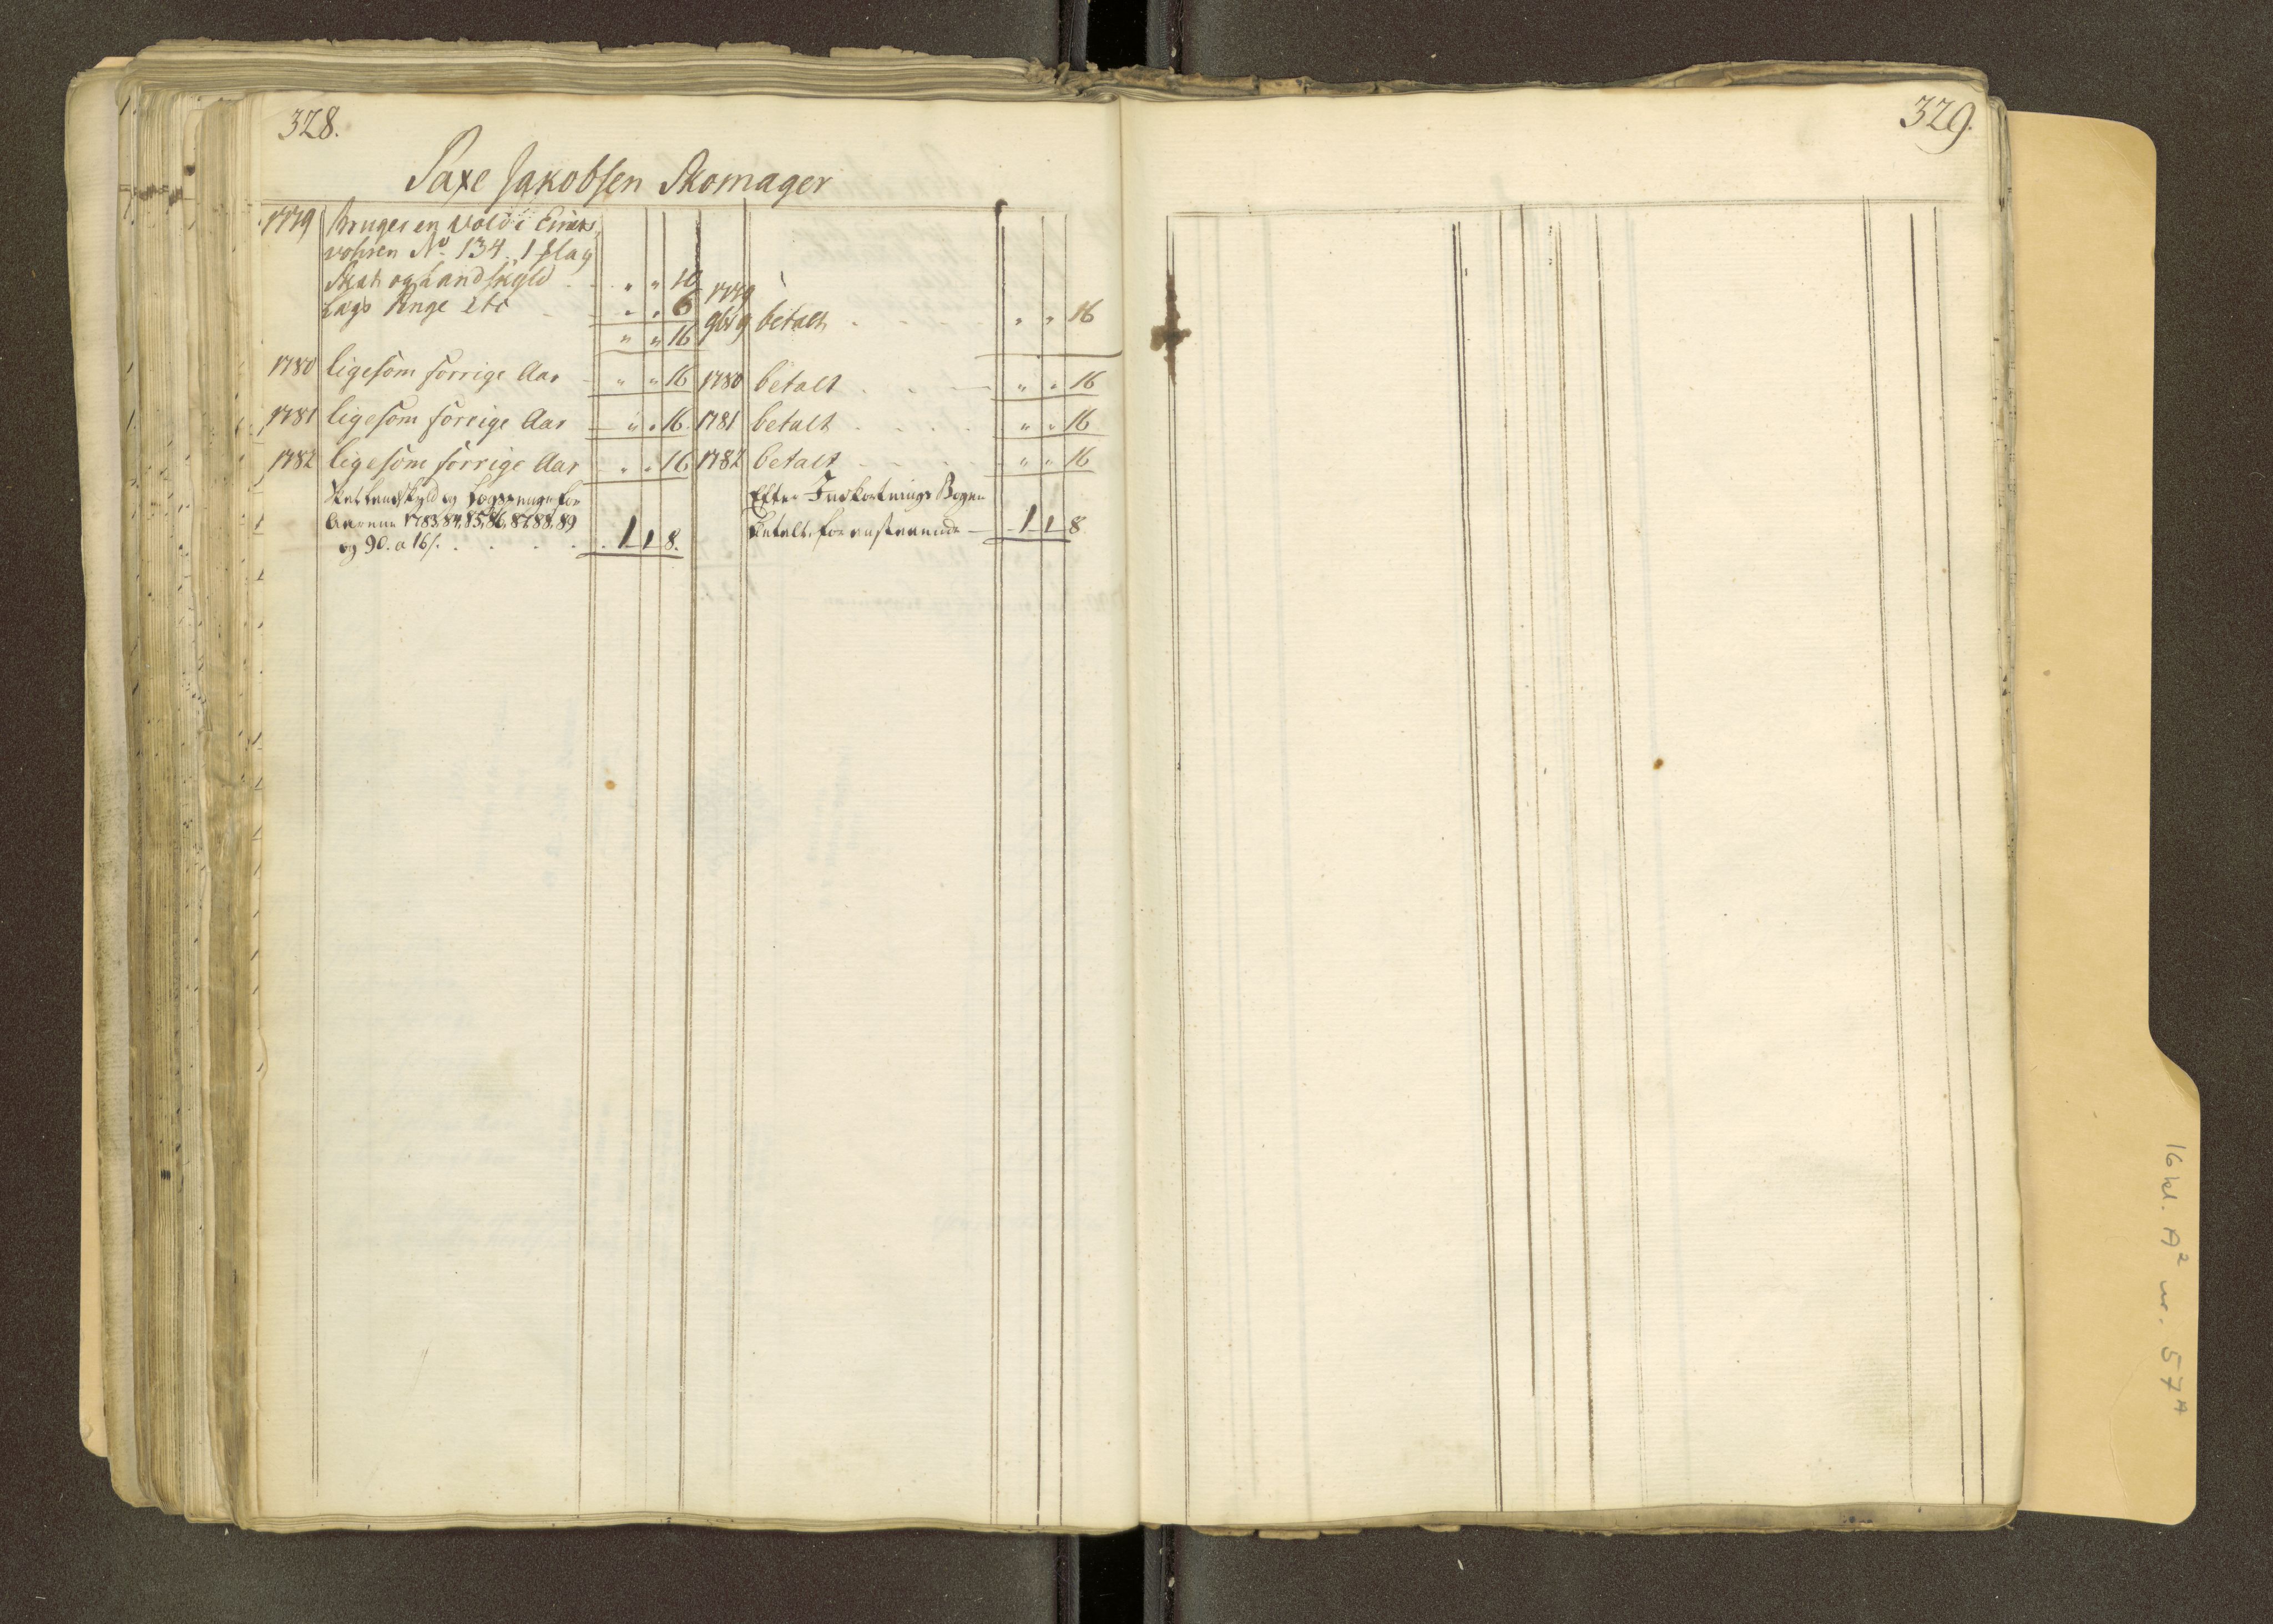 328.
Saxe Jakobsen Skomager
1779 Bruger en Vold i
vohren No 134. 1 flag
Skat og Landskyld . . " " 10
Lags Penge etc - " " 6
" " 16
1779
9br 9 betalt . . . . " " 16
1780 ligesom forrige Aar - " " 16 1780 betalt . . — " " 16
1781 ligesom forrige Aar - " " 16. 1781 betalt . . . . " " 16
1782 ligesom forrige Aar - " " 16 1782 betalt - - - - " " 16
Landskyld og Lagspenge for
Aarene 1783, 84, 85, 86, 87, 88, 89
og 90. a 16ſ. . . . . 1 1 8.
Efter Inkortnings Bogen
betalt foranstaaende — 1 1 8
329.
16 kl. A2 nr. 57A